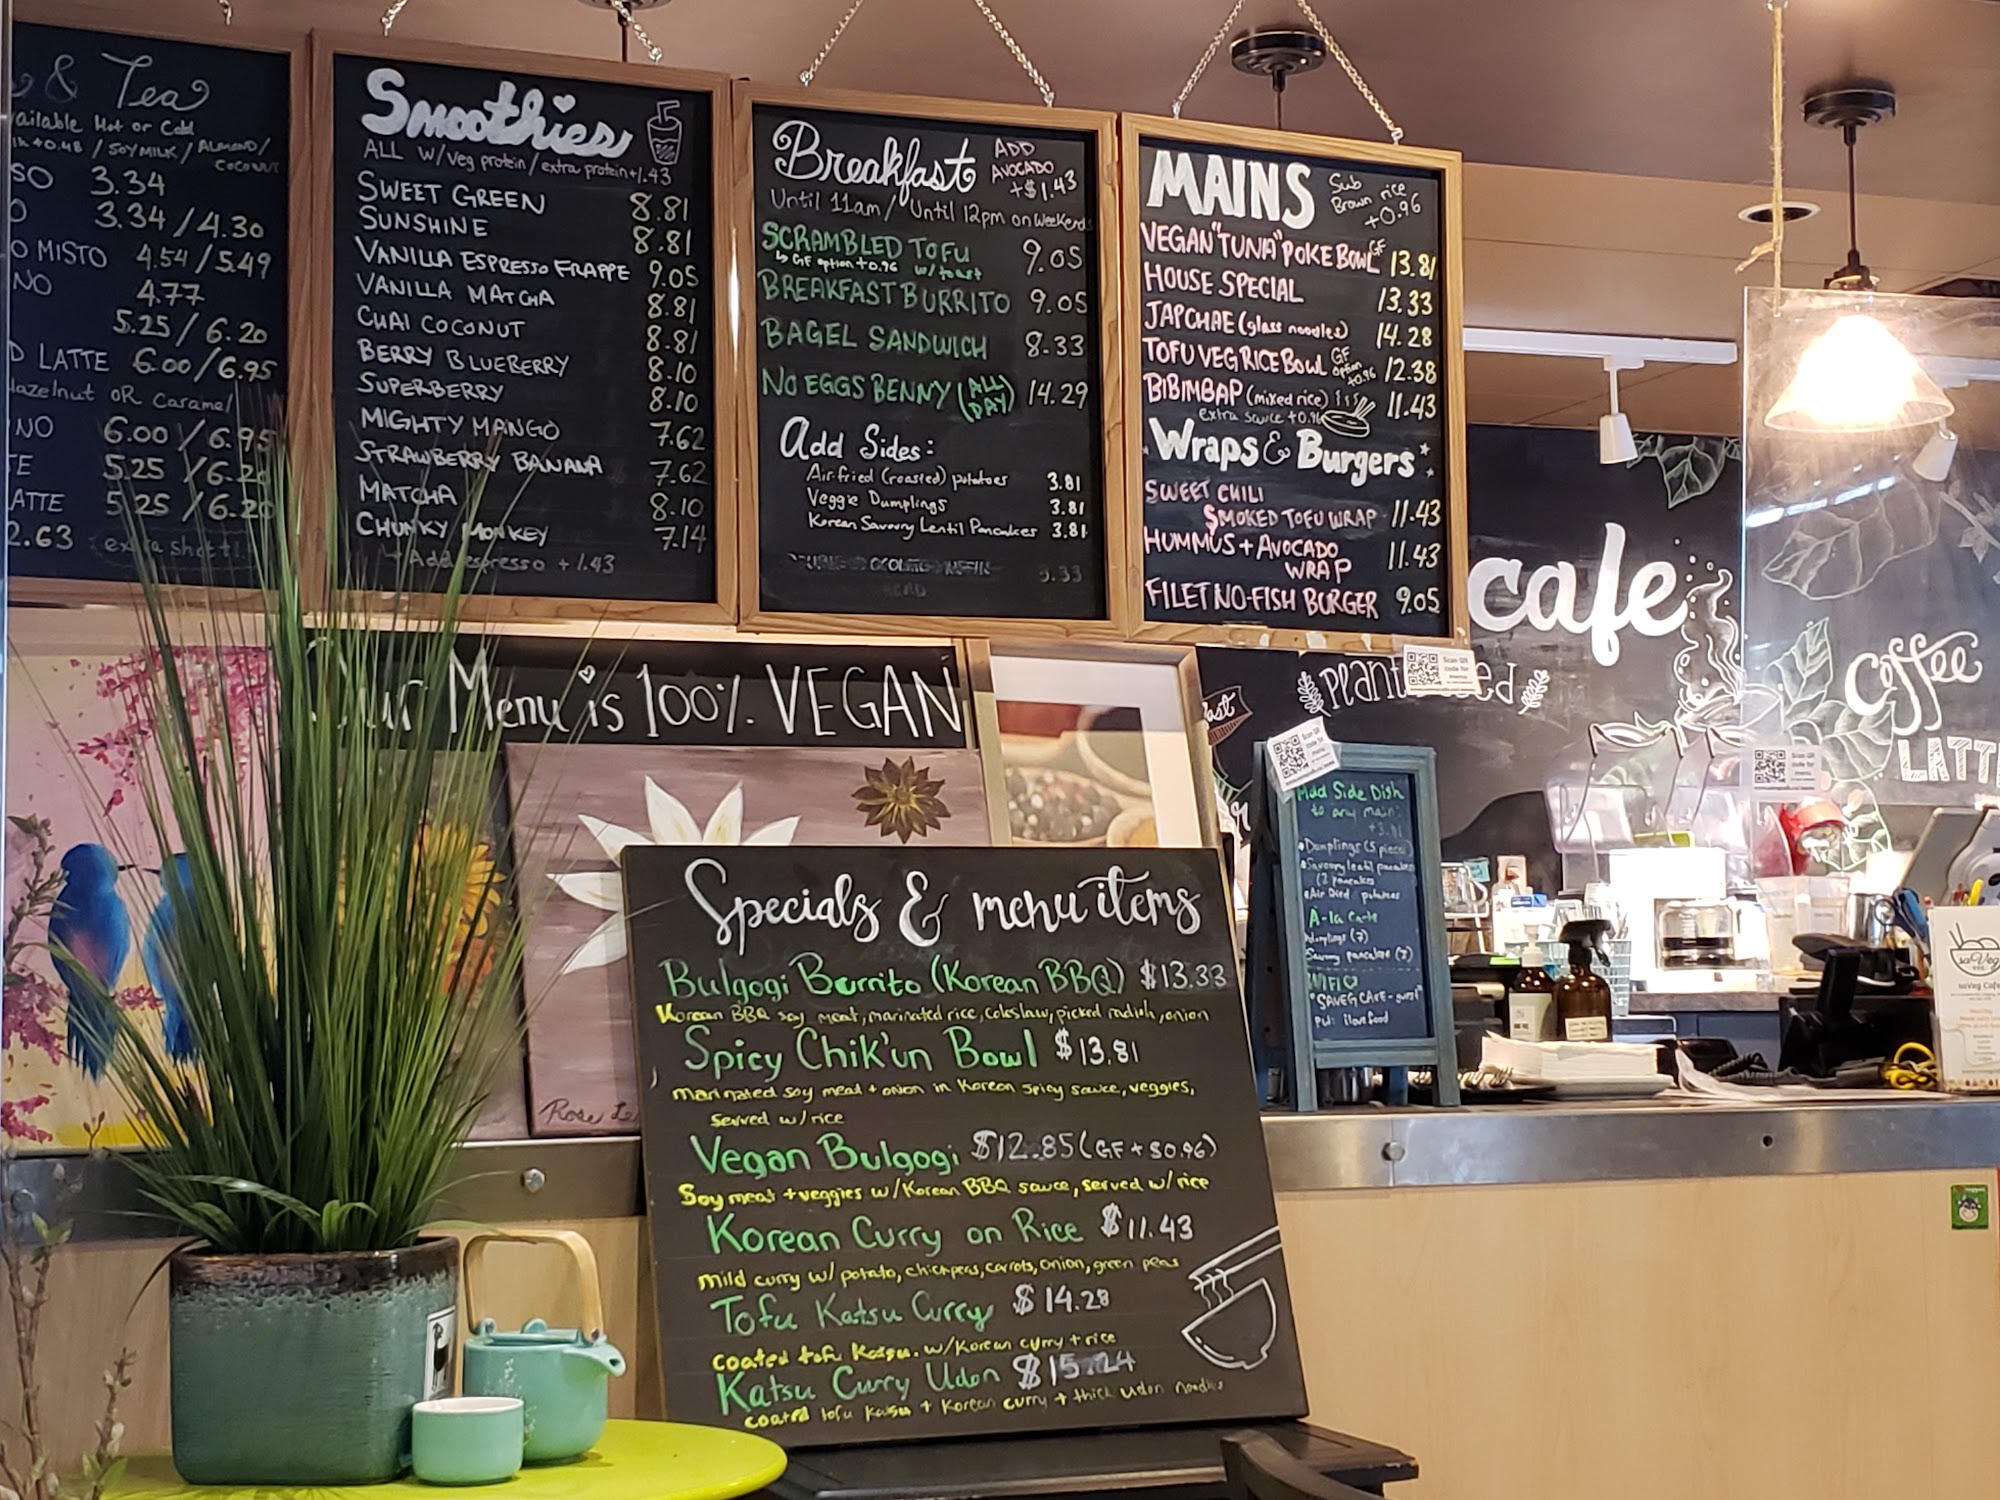 & Tea
Hot or Cold
+0.48 / SOY MILK / ALMOND /
COCONUT
3.34
3.34 / 4.30
MISTO 4.54 / 5.49
4.77
5.25 / 6.20
LATTE 6.00 / 6.95
OR caramel
6.00 / 6.95
5.25 / 6.20
5.25 / 6.20
2.63 extra shot
Smoothies
ALL w/ veg protein / extra protein +1.43
SWEET GREEN 8.81
SUNSHINE 8.81
VANILLA ESPRESSO FRAPPE 9.05
VANILLA MATCHA 8.81
CHAI COCONUT 8.81
BERRY BLUEBERRY 8.10
SUPERBERRY 8.10
MIGHTY MANGO 7.62
STRAWBERRY BANANA 7.62
MATCHA 8.10
CHUNKY MONKEY 7.14
Add espresso +1.43
Breakfast
ADD
AVOCADO
+$1.43
Until 11am / Until 12pm on weekends
SCRAMBLED TOFU 9.05
GF option +0.96 w/ toast
BREAKFAST BURRITO 9.05
BAGEL SANDWICH 8.33
NO EGGS BENNY (ALL DAY) 14.29
Add Sides:
Air-fried (roasted) potatoes 3.81
Veggie Dumplings 3.81
Korean Savoury Lentil Pancakes 3.81
3.33
MAINS
Sub
Brown rice
+0.96
VEGAN "TUNA" POKE BOWL GF 13.81
HOUSE SPECIAL 13.33
JAPCHAE (glass noodles) 14.28
TOFU VEG RICE BOWL GF option +0.96 12.38
BIBIMBAP (mixed rice) 11.43
extra sauce +0.96
Wraps & Burgers
SWEET CHILI
SMOKED TOFU WRAP 11.43
HUMMUS + AVOCADO
WRAP 11.43
FILET NO-FISH BURGER 9.05
Our Menu is 100% VEGAN
cafe
Plant
Scan QR
code for
menu
Coffee
LATTE
Scan QR
code for
menu
Scan QR
code for
menu
Add Side Dish
to any main:
Dumplings (5 pieces)
Savoury lentil pancakes
(2 pancakes
Air fried potatoes
A-la Carte
dumplings (7)
Savoury pancakes (3)
WIFI
"SAVEG CAFE - guest"
pw: ilovefood
Specials & menu items
Bulgogi Burrito (Korean BBQ) $13.33
Korean BBQ soy meat, marinated rice, coleslaw, picked radish, onion
Spicy Chik'un Bowl $13.81
marinated soy meat + onion in Korean spicy sauce, veggies,
served w/ rice
Vegan Bulgogi $12.85 (GF + $0.96)
Soy meat + veggies w/ Korean BBQ sauce, served w/ rice
Korean Curry on Rice $11.43
mild curry w/ potato, chickpeas, carrots, onion, green peas
Tofu Katsu Curry $14.28
coated tofu Katsu. w/ Korean curry + rice
Katsu Curry Udon $15.24
coated tofu katsu + Korean curry + thick udon noodles
Rose
saVeg
saVeg Cafe